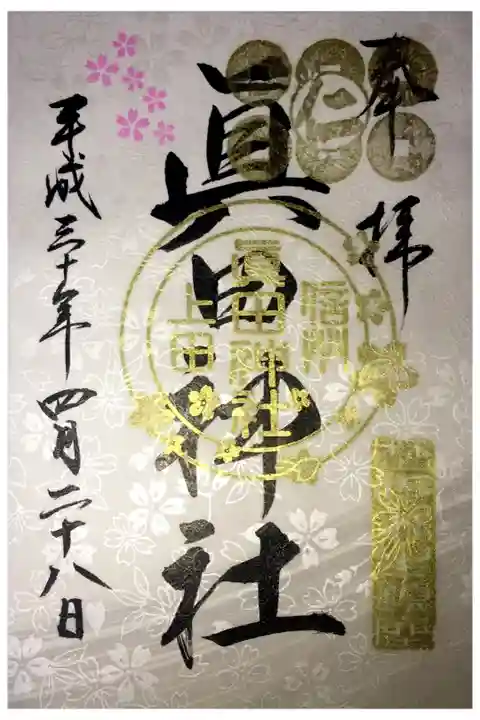 奉拝
眞田神社
信州
眞田神社
上田
平成三十年四月二十八日